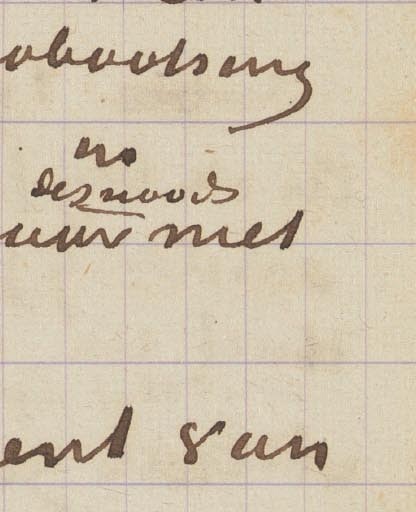 obootsing
no
desnoods
uur met
ent van